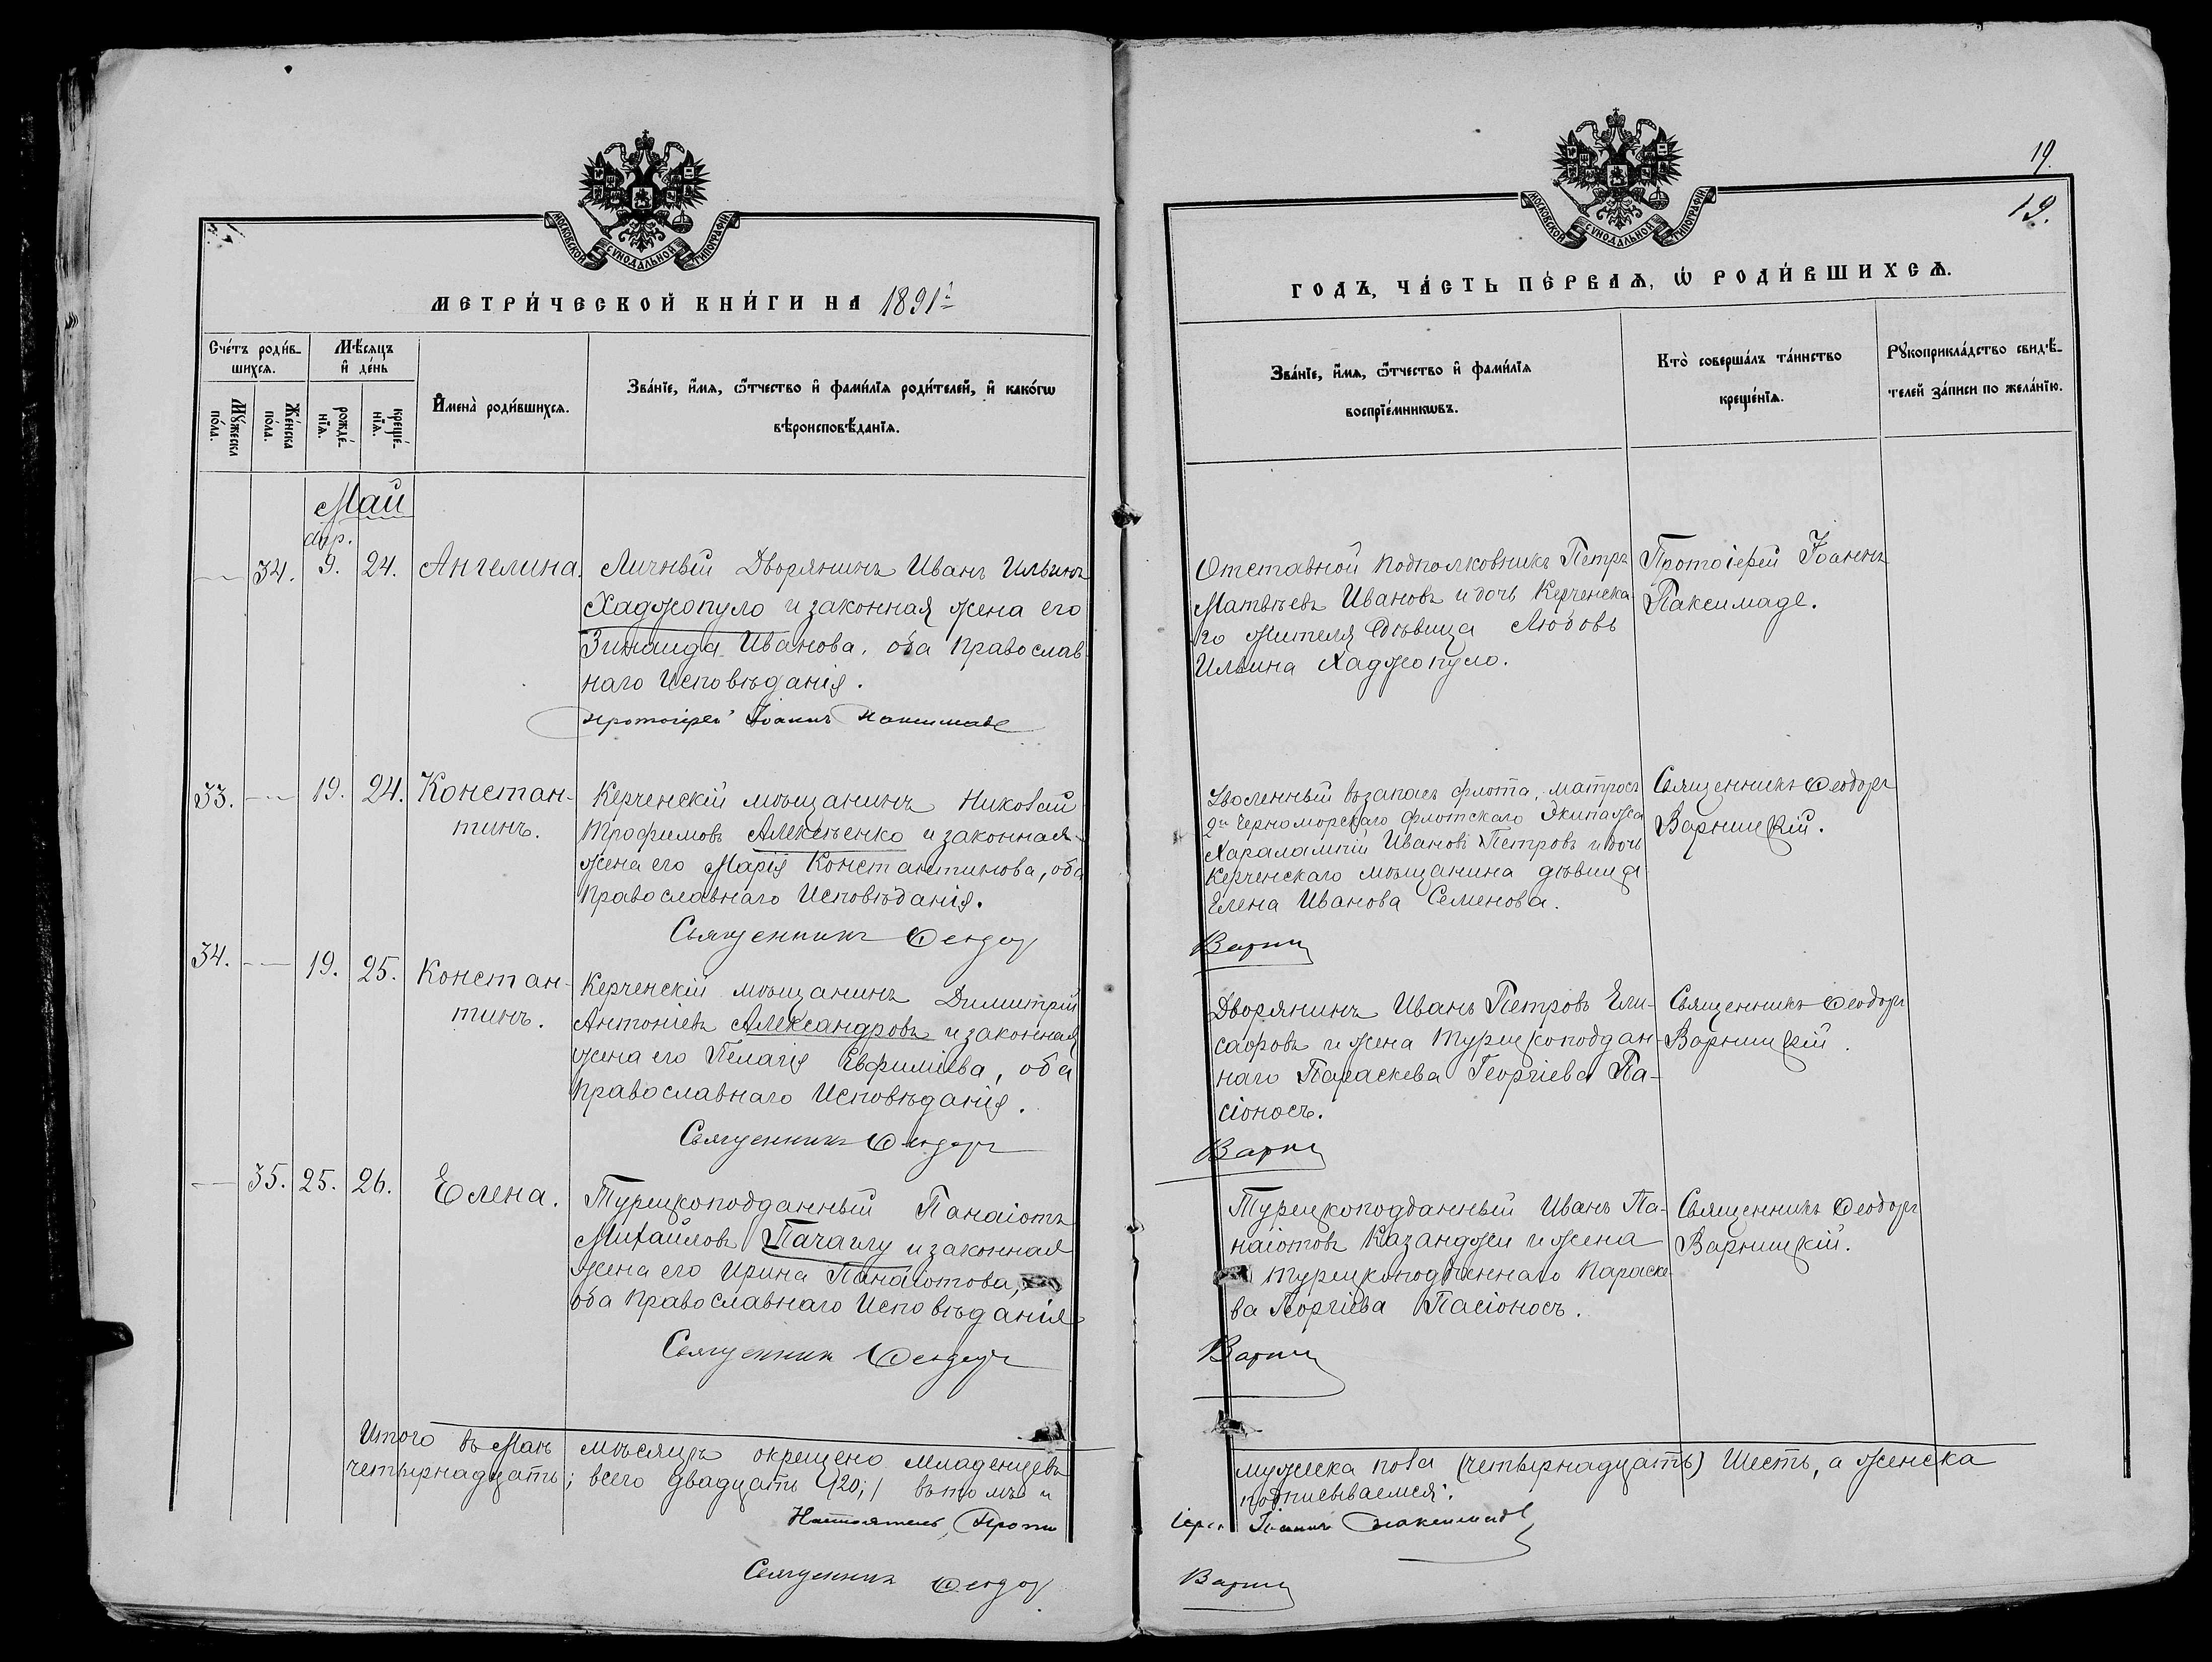 МОСКОВСКОЙ СѴНОДАЛЬНОЙ ТИПОГРАФІИ
МЕТРИ́ЧЕСКОЙ КНИ́ГИ НА 1891й
Сче́тъ роди́в-
шихсѧ.
Мѣ́сѧцъ
и҆ де́нь
И҆мена̀ роди́вшихсѧ.
Зва́нїе, и҆́мѧ, ѻ҆́тчество и҆ фами́лїѧ роди́телей, и҆ како́гѡ
вѣроисповѣ́данїѧ.
Мꙋ́жеска
по́ла.
Же́нска
по́ла.
рожде́-
нїѧ.
креще́-
нїѧ.
Май
Апр.
— 34. 9. 24. Ангелина. Личный Дворянинъ Иванъ Ильинъ
Хаджопуло и законная жена его
Зинаида Иванова, оба православ-
наго Исповѣданія.
Протоіерей Іоаннъ Паксимаде
33. — 19. 24. Констан-
тинъ.
Керченскій мѣщанинъ Николай
Трофимовъ Алексѣенко и законная
жена его Марія Константинова, оба
православнаго Исповѣданія.
Священникъ Ѳеодоръ
34. — 19. 25. Констан-
тинъ.
Керченскій мѣщанинъ Димитрій
Антоніевъ Александровъ и законная
жена его Пелагія Евфиміева, оба
православнаго Исповѣданія.
Священникъ Ѳеодоръ
— 35. 25. 26. Елена. Турецкоподданный Панаіотъ
Михаиловъ и законная
жена его Ирина Панаіотова,
оба православнаго Исповѣданія
Священникъ Ѳеодоръ
Итого въ Маѣ мѣсяцѣ окрещено младенцевъ
четырнадцать; всего двадцать /20;/ въ томъ и
Настоятель, Прото
Священникъ Ѳеодор
19.
19.
МОСКОВСКОЙ СѴНОДАЛЬНОЙ ТИПОГРАФІИ
ГОДЪ, ЧА́СТЬ ПЕ́РВАѦ, Ѡ҆ РОДИ́ВШИХСѦ.
Зва́нїе, и҆́мѧ, ѻ҆́тчество и҆ фами́лїѧ
воспрїе́мникѡвъ.
Кто̀ соверша́лъ та́инство
креще́нїѧ.
Рꙋкоприкла́дство свидѣ́-
телей за́писи по жела́нїю.
Отставной подполковникъ Петръ
Матвѣевъ Ивановъ и дочь Керченска-
го жителя дѣвица Любовь
Ильина Хаджопуло.
Протоіерей Іоаннъ
Паксимаде.
Уволенный въ запасъ флота, матросъ
2го Черноморскаго флотскаго Экипажа
Харалампій Ивановъ Петровъ и дочь
Керченскаго мѣщанина дѣвица
Елена Иванова Семенова.
Варни
Священникъ Ѳеодоръ
Варницкій.
Дворянинъ Иванъ Петровъ Ели-
сафовъ и жена Турецкоподдан-
наго Параскева Георгіева Па-
сіоносъ.
Варни
Священникъ Ѳеодоръ
Варницкій.
Турецкоподданный Иванъ Па-
наіотовъ Казанджи и жена
Турецкоподданнаго Параске-
ва Георгіева Пасіоносъ.
Варни
Священникъ Ѳеодоръ
Варницкій.
мужеска пола (четырнадцать) Шесть, а женска
подписываемся:
іерей Іоаннъ Паксимаде
Варни